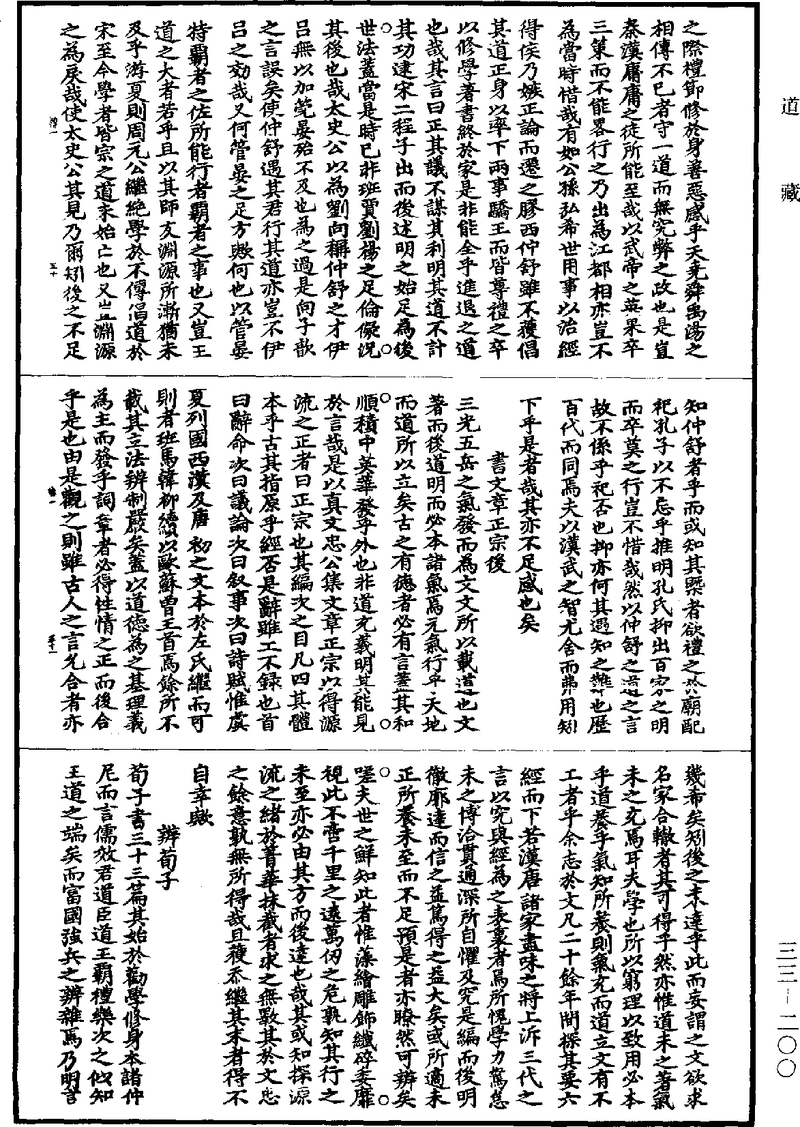 道藏
之際禮節修於身善惡感乎天堯舜禹湯之
相傳不已者守一道而無究弊之政也是豈
秦漢庸庸之徒所能至哉以武帝之英果卒
三策而不能畧行之乃出為江都相亦豈不
為當時惜哉有如公孫弘希世用事以治經
得侯乃嫉正論而遷之膠西仲舒雖不獲倡
其道正身以率下兩事驕王而皆尊禮之卒
以修學著書終於家是非能全乎進退之道
也哉其言曰正其議不謀其利明其道不計
其功逮宋二程子出而後述明之始足為後
世法蓋當是時已非班賈劉楊之足倫儗况
其後也哉太史公以為劉向稱仲舒之才伊
呂無以加筦晏殆不及也為之過是向子歆
之言誤矣使仲舒遇其君行其道亦豈不伊
呂之効哉又何管晏之足方歟何也以管晏
特霸者之佐所能行者霸者之事也又豈王
道之大者若乎且以其師友淵源所漸猶未
及乎游夏則周元公繼絶學於不傳滔道於
宋至今學者皆宗之道未始亡也又豈淵源
之為戾哉使太史公其見乃爾矧後之不足
知仲舒者乎而或知其槩者欲禮之於廟配
祀孔子以不忘乎推明孔氏抑出百家之明
而卒莫之行豈不惜哉然以仲舒之道之言
故不係乎祀否也抑亦何其遇知之難也歷
百代而同焉夫以漢武之智尤舍而弗用矧
下乎是者哉其亦不足感也矣
書文章正宗後
三光五岳之氣發而為文文所以載道也文
著而後道明而必本諸氣焉元氣行乎天地
而道所以立矣古之有德者必有言蓋其和
順積中英華發乎外也非道充義明其能見
於言哉是以真文忠公集文章正宗以得源
流之正者曰正宗也其編次之目凡四其體
本乎古其指原乎經否是辭雖工不録也首
曰辭命次曰議論次曰叙事次曰詩賦惟虞
夏列國西漢及唐初之文本於左氏繼而可
則者班馬韓柳續以歐蘇曾王首焉餘所不
截其立法辨制嚴矣蓋以道徳為之基理義
為主而發乎詞章者必得性情之正而後合
乎是也由是觀之則雖古人之言尤合者亦
幾希矣矧後之未達乎此而妄謂之文欲求
名家合轍者其可得乎然亦惟道未之著氣
未之充焉耳夫學也所以窮理以致用必本
乎道養乎氣知所養則氣充而道立文有不
工者乎余志於文凡二十餘年間探其要六
經而下若漢唐諸家盡味之將上泝三代之
言以究與經為之表裏者焉所愧學力駑怠
未之博洽貫通深所自懼及究是編而後明
徹廓達而信之益篤得之益大矣或所適未
正所養未至而不足預是者亦瞭然可辨矣
嗟夫世之鮮知此者惟藻繪雕飾纖碎委靡
視此不啻千里之遠萬仞之危孰知其行之
未至亦必由其方而後達也哉其或知探源
流之緒於菁華抹截者求之無斁其於文忠
之餘意孰無所得哉且複忝繼其末者得不
自幸歟
辨荀子
荀子書三十三篇其始於勸學修身本諸仲
尼而言儒效君道臣道王霸禮樂次之似知
王道之端矣而富國強兵之辨雜焉乃明言
三三-二〇〇